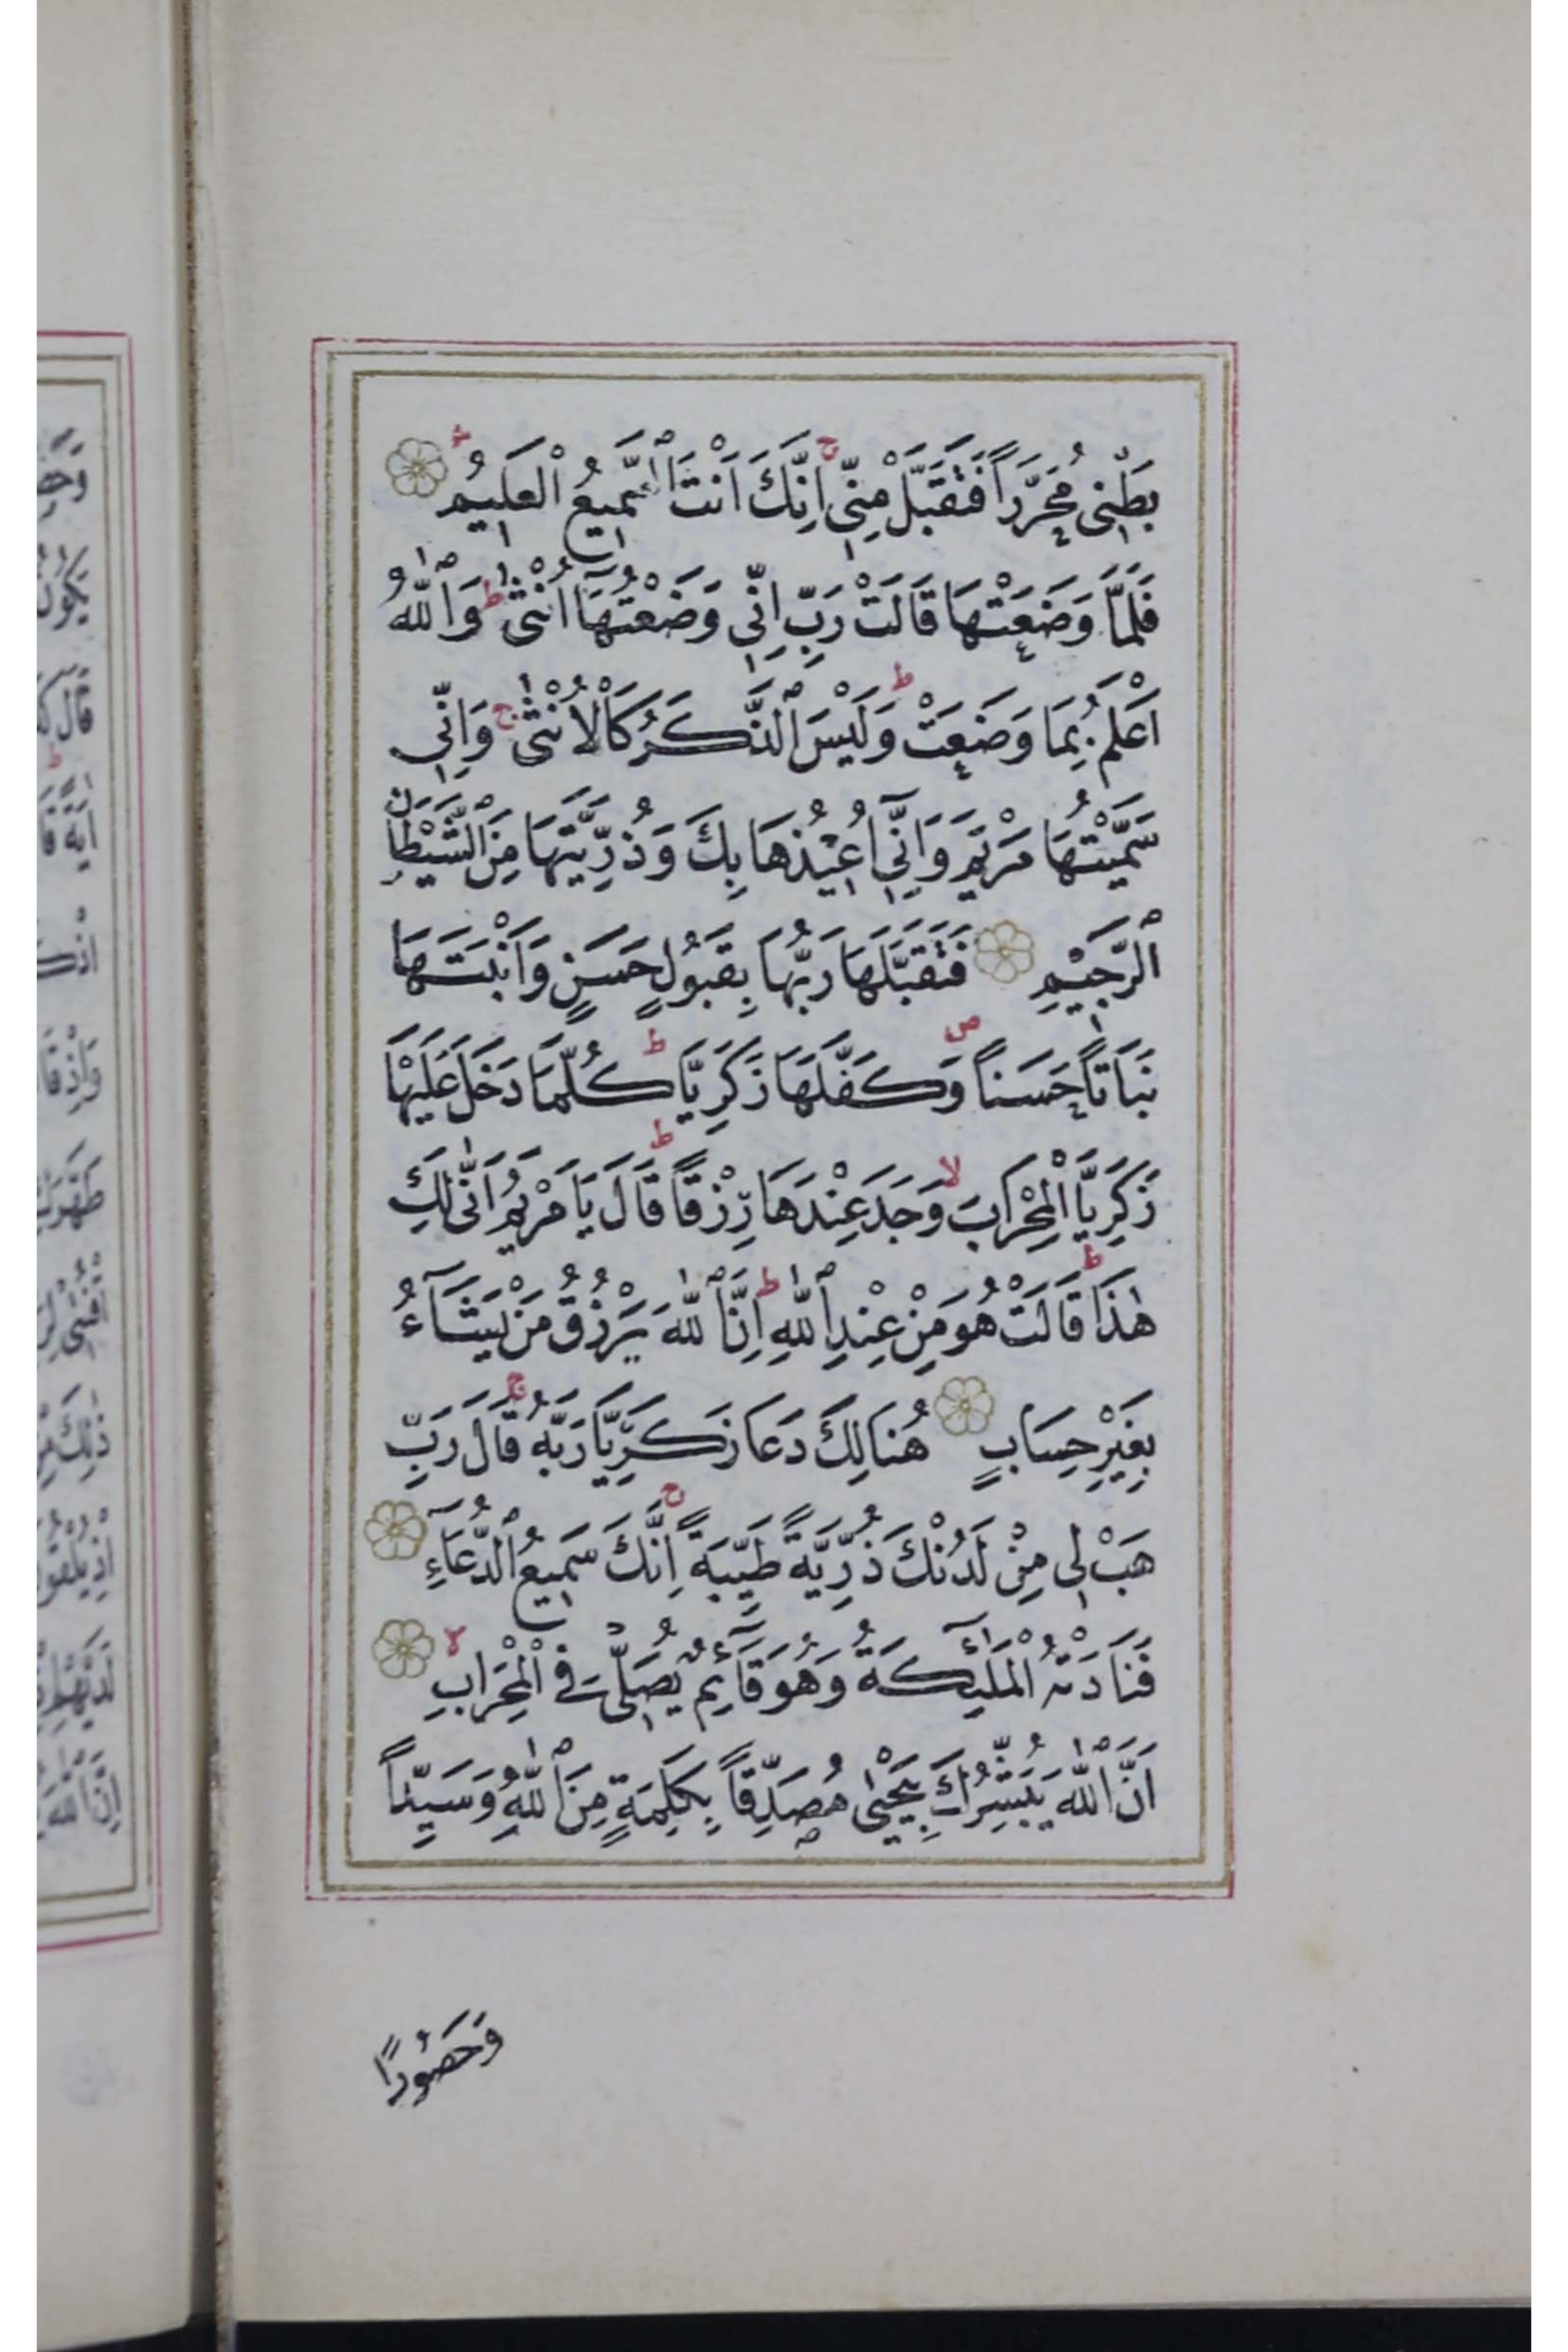 بَطْنِى مُحَرَّراً فَتَقَبَّلْ مِنِّى ج اِنَّكَ اَنْتَ ٱلسَّمِيعُ الْعَلِيمُ
فَلَمَّا وَضَعَتْهَا قَالَتْ رَبِّ اِنِّى وَضَعْتُهَآ اُنْثٰى ط وَٱللّٰهُ
اَعْلَمُ بِمَا وَضَعَتْ ط وَلَيْسَ ٱلذَّكَرُ كَالْاُنْثٰى ج وَاِنِّى
سَمَّيْتُهَا مَرْيَمَ وَاِنِّىٓ اُعِيْذُهَا بِكَ وَذُرِّيَّتَهَا مِنَ ٱلشَّيْطَانِ
ٱلرَّجِيْمِ فَتَقَبَّلَهَا رَبُّهَا بِقَبُولٍ حَسَنٍ وَاَنْبَتَهَا
نَبَاتاً حَسَناً ص وَكَفَّلَهَا زَكَرِيَّا ط كُلَّمَا دَخَلَ عَلَيْهَا
زَكَرِيَّا الْمِحْرَابَ لا وَجَدَ عِنْدَهَا رِزْقاً ط قَالَ يَا مَرْيَمُ اَنّٰى لَكِ
هٰذَا ط قَالَتْ هُوَ مِنْ عِنْدِ ٱللّٰهِ ط اِنَّ ٱللّٰهَ يَرْزُقُ مَنْ يَشَآءُ
بِغَيْرِ حِسَابٍ هُنَالِكَ دَعَا زَكَرِيَّا رَبَّهُ ج قَالَ رَبِّ
هَبْ لِى مِنْ لَدُنْكَ ذُرِّيَّةً طَيِّبَةً ج اِنَّكَ سَمِيعُ ٱلدُّعَآءِ
فَنَادَتْهُ الْمَلٰٓئِكَةُ وَهُوَ قَآئِمٌ يُصَلِّى فِى الْمِحْرَابِ لا
اَنَّ ٱللّٰهَ يُبَشِّرُكَ بِيَحْيٰى مُصَدِّقاً بِكَلِمَةٍ مِنَ ٱللّٰهِ وَسَيِّداً
وَحَصُورًا